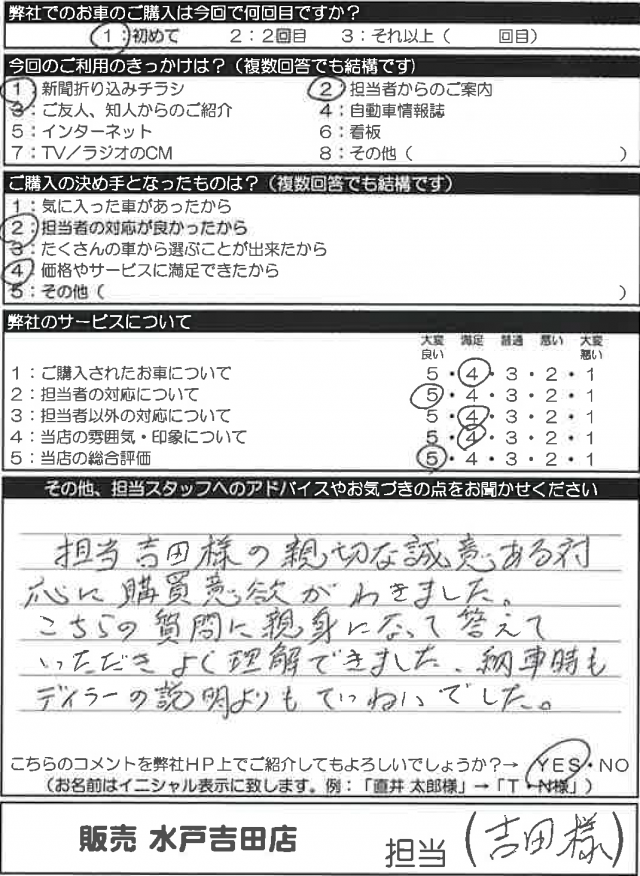 弊社でのお車のご購入は今回で何回目ですか？
1：初めて　2：2回目　3：それ以上（　　回目）
今回のご利用のきっかけは？（複数回答でも結構です）
1：新聞折り込みチラシ　2：担当者からのご案内
3：ご友人、知人からのご紹介　4：自動車情報誌
5：インターネット　6：看板
7：TV／ラジオのCM　8：その他（　　）
ご購入の決め手となったものは？（複数回答でも結構です）
1：気に入った車があったから
2：担当者の対応が良かったから
3：たくさんの車から選ぶことが出来たから
4：価格やサービスに満足できたから
5：その他（　　）
弊社のサービスについて
大変良い　満足　普通　悪い　大変悪い
1：ご購入されたお車について　5・4・3・2・1
2：担当者の対応について　5・4・3・2・1
3：担当者以外の対応について　5・4・3・2・1
4：当店の雰囲気・印象について　5・4・3・2・1
5：当店の総合評価　5・4・3・2・1
その他、担当スタッフへのアドバイスやお気づきの点をお聞かせください
担当吉田様の親切な誠意ある対
応に購買意欲がわきました。
こちらの質問に親身になって答えて
いただきよく理解できました、納車時も
ディラーの説明よりもていねいでした。
こちらのコメントを弊社HP上でご紹介してもよろしいでしょうか？→　YES・NO
（お名前はイニシャル表示に致します。例：「直井 太郎様」→「T・N様」）
販売 水戸吉田店　担当（吉田様）